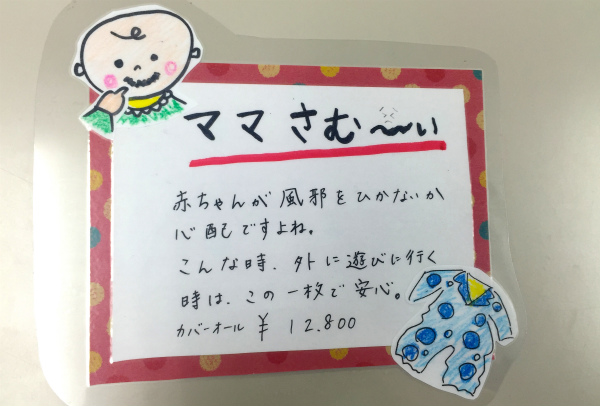 ママ さむ〜い
赤ちゃんが 風邪をひかないか
心配ですよね。
こんな時、外に遊びに行く
時は、この一枚で安心。
カバーオール ¥ 12.800